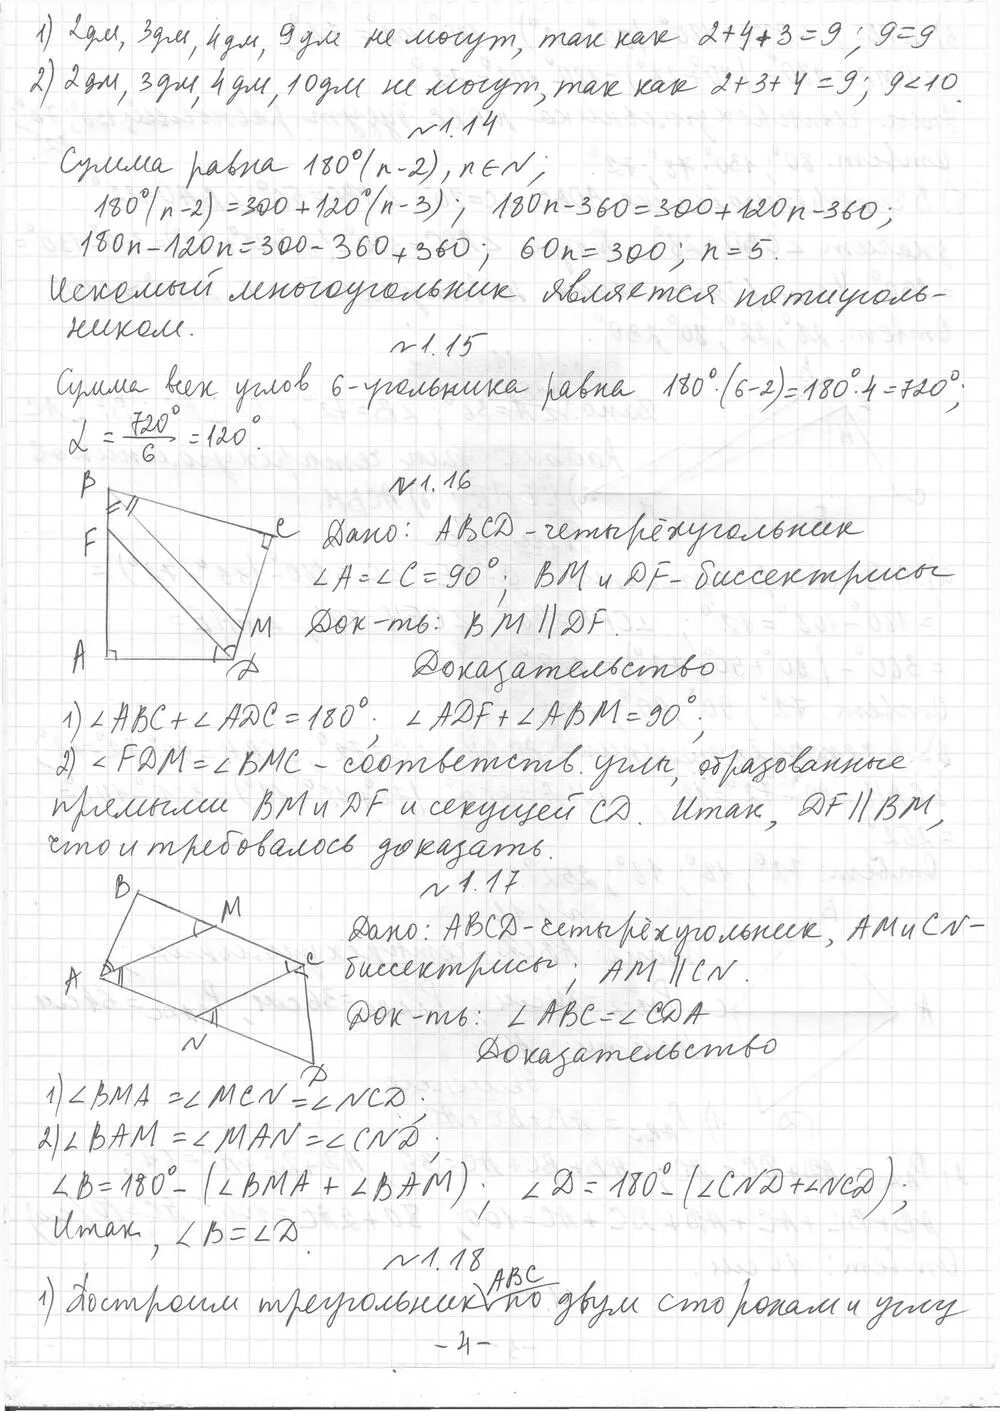 1) 2дм, 3дм, 4дм, 9дм не могут, так как 2+4+3=9; 9=9
2) 2дм, 3дм, 4дм, 10дм не могут, так как 2+3+4=9; 9<10.
~1.14
Сумма равна 180°(n-2), n∈N;
180°(n-2)=300+120°(n-3); 180n-360=300+120n-360;
180n-120n=300-360+360; 60n=300; n=5.
Искомый многоугольник является пятиуголь-
ником.
~1.15
Сумма всех углов 6-угольника равна 180°·(6-2)=180°·4=720°;
α = 720°/6 = 120°.
~1.16
B
F
C
M
A
D
Дано: ABCD-четырёхугольник
∠A=∠C=90°; BM и DF-биссектрисы
Док-ть: BM∥DF.
Доказательство
1) ∠ABC+∠ADC=180°; ∠ADF+∠ABM=90°;
2) ∠FDM=∠BMC-соответств. углы, образованные
прямыми BM и DF и секущей CD. Итак, DF∥BM,
что и требовалось доказать.
~1.17
B
M
C
A
N
D
Дано: ABCD-четырёхугольник, AM и CN-
биссектрисы; AM∥CN.
Док-ть: ∠ABC=∠CDA
Доказательство
1) ∠BMA=∠MCN=∠NCD;
2) ∠BAM=∠MAN=∠CND;
∠B=180°-(∠BMA+∠BAM); ∠D=180°-(∠CND+∠NCD);
Итак, ∠B=∠D.
~1.18
1) Построим треугольник ABC по двум сторонам и углу
-4-